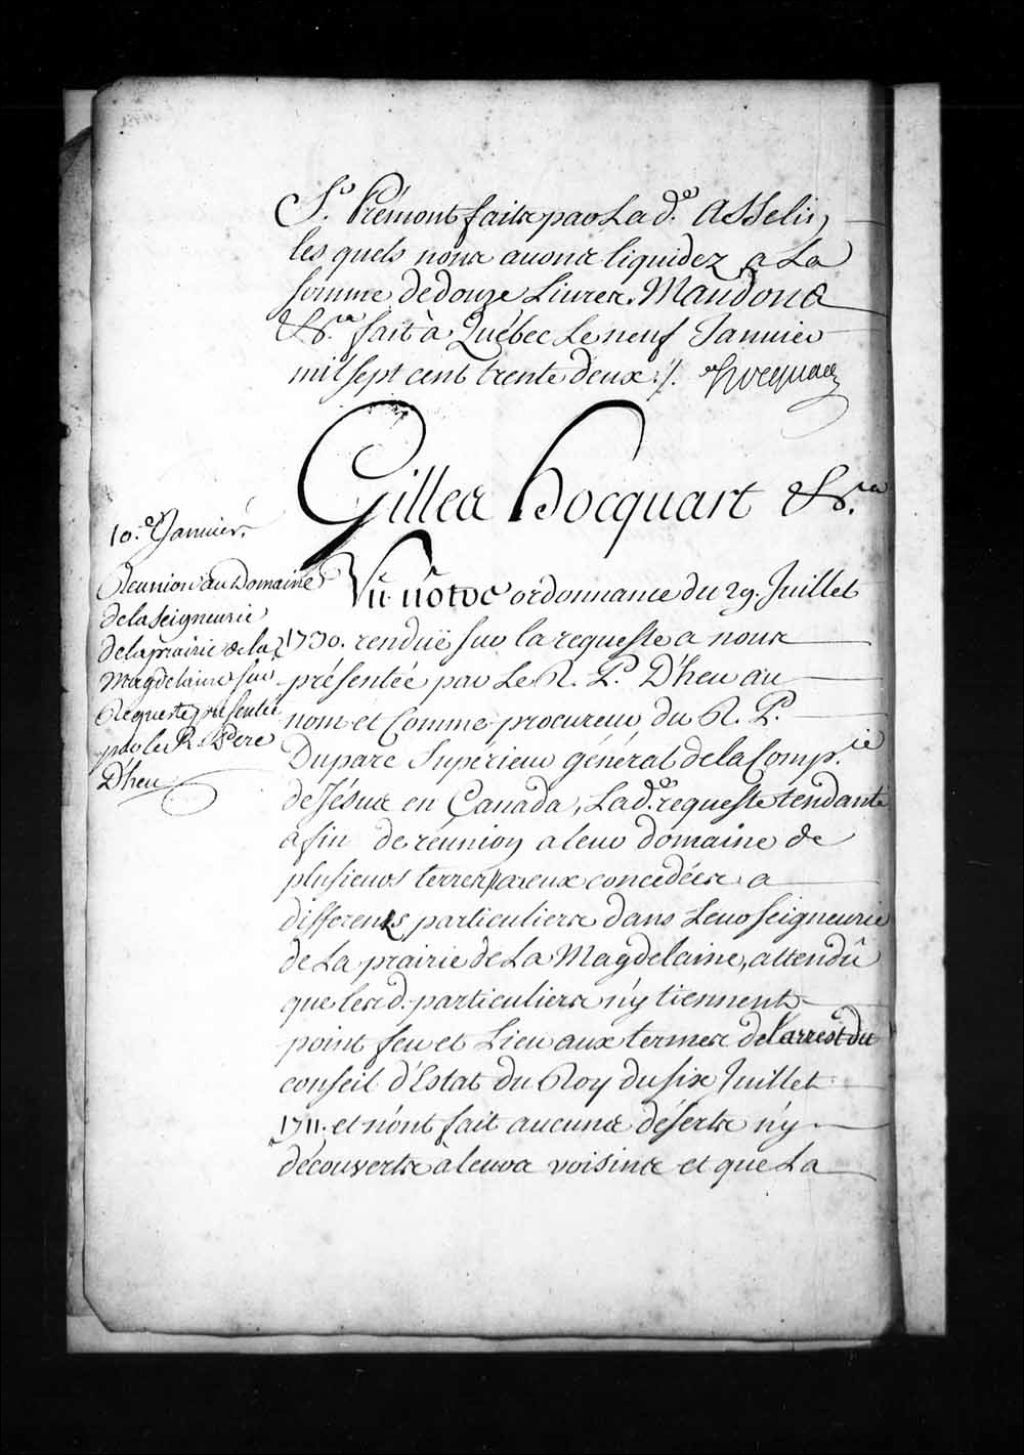 S.r Prémont faits par Lad.e Asselin,
les quels nous avons liquidez a La
somme de douze Livres. Mandons
&c.ra fait à Québec Le neuf Janvier
mil sept cent trente deux ./. Hocquart
Gilles hocquart &c.ra
10.e Janvier.
Reunion au Domaine
de la seigneurie
de la prairie de la
Magdelaine sur
Requeste presentée
par le R. Pere
D'heu
Vû nôtre ordonnance du 29. Juillet
1730. renduë sur la requeste a nous
présentée par Le R. P. D'heu au
nom et Comme procureur du R. P.
Duparc Supérieur général de la Comp.ie
de Jésus en Canada, Lad.e requeste tendante
à fin de réunion a leur domaine de
plusieurs terres par eux concedées a
differents particuliers dans Leur seigneurie
de La prairie de La Magdelaine, attendû
que lesd. particuliers n'y tiennent
point feu et Lieu aux termes de l'arrest du
conseil d'Estat du Roy du six Juillet
1711. et n'ont fait aucuns déserts n'y
découverts a leurs voisins et que La